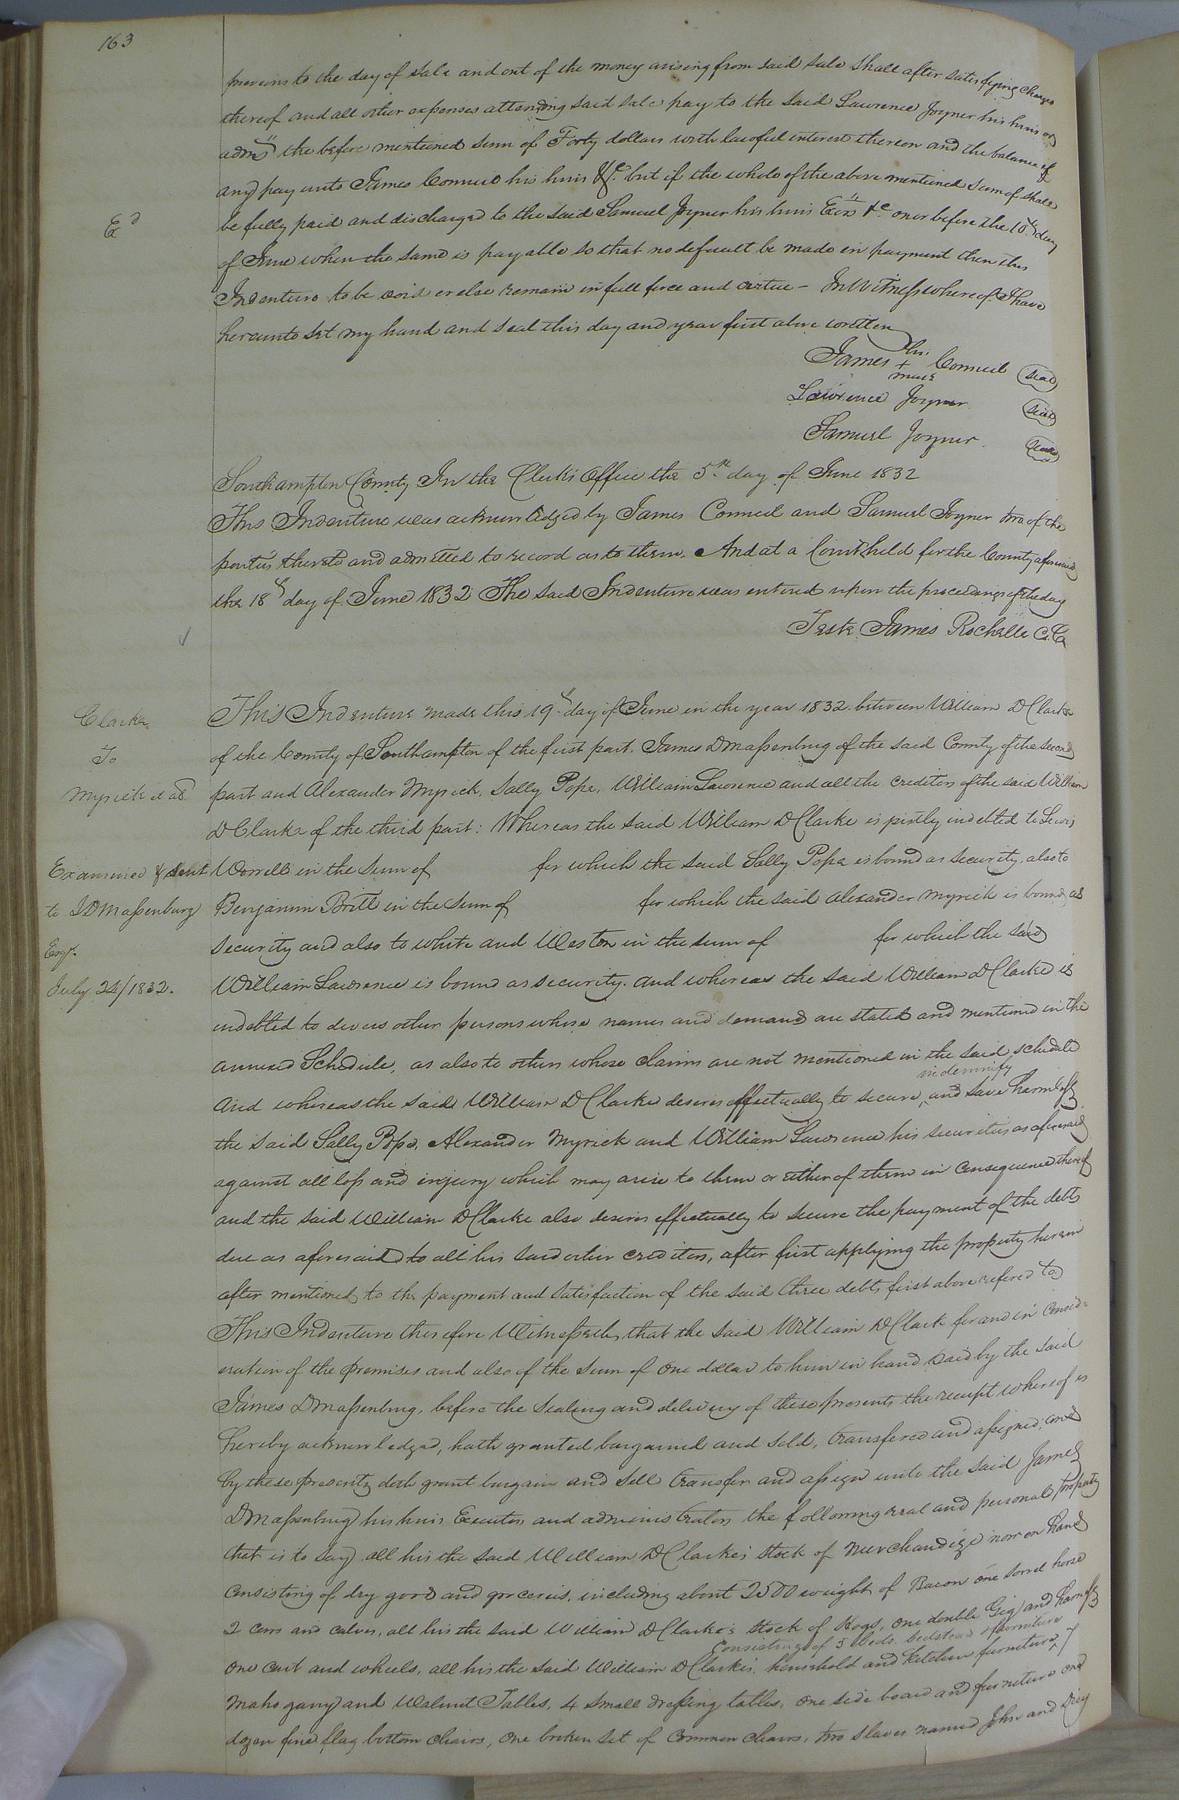 163
previous to the day of sale and out of the money arising from said sale shall after satisfying charges
thereof and all other expenses attending said sale pay to the said Lawrence Joyner his heirs or
admrs the before mentioned sum of Forty dollars with lawful interest thereon and the balance if
any pay unto James Conncil his heirs &c. but if the whole of the above mentioned sum of shall
Exd
be fully paid and discharged to the said Samuel Joyner his heirs Exrs &c on or before the 10th day
of June when the same is payable so that no default be made in payment then this
Indenture to be void or else remain in full force and virtue - In Witness whereof I have
hereunto set my hand and seal this day and year first above written
James his + mark Conncil seal
Lawrence Joyner seal
Samuel Joyner seal
Southampton County In the Clerks Office the 5th day of June 1832
This Indenture was acknowledged by James Conncil and Samuel Joyner two of the
parties thereto and admitted to record as to them. And at a Court held for the County aforesaid
the 18th day of June 1832 The said Indenture was entered upon the proceedings of the day
Teste James Rochelle C.C.
Clarke
To
Myrick et als
This Indenture made this 19th day of June in the year 1832 between William D Clarke
of the County of Southampton of the first part. James D Massenburg of the said County of the second
part and Alexander Myrick, Sally Pope, William Lawrence and all the creditors of the said William
D Clarke of the third part: Whereas the said William D Clarke is justly indebted to Lewis
Examined & sent
to J D Massenburg
Esqr.
July 24/1832.
Worrell in the sum of for which the said Sally Pope is bound as security, also to
Benjamin Britt in the sum of for which the said Alexander Myrick is bound as
security and also to White and Weston in the sum of for which the said
William Lawrence is bound as security. and whereas the said William D Clarke is
indebted to divers other persons whose names and demand are stated and mentioned in the
annexed Schedule, as also to others whose claims are not mentioned in the said schedule
And whereas the said William D Clarke desires effectually to secure, indemnify and save harmless
the said Sally Pope, Alexander Myrick and William Lawrence his securities as aforesaid
against all loss and injury which may arise to them or either of them in consequence thereof
and the said William D Clarke also desires effectually to secure the payment of the debts
due as aforesaid to all his said other creditors, after first applying the property herein
after mentioned to the payment and satisfaction of the said three debts first above refered to
This Indenture therefore Witnesseth, that the said William D Clark for and in consid-
eration of the premises and also of the sum of one dollar to him in hand paid by the said
James D Massenburg, before the sealing and delivery of these presents the receipt whereof is
hereby acknowledged, hath granted bargained and sold, transfered and assigned, and
by these presents doth grant bargain and sell transfer and assign unto the said James
D Massenburg his heirs Executors and administrators the following real and personal property
that is to say all his the said William D Clarke's stock of merchandize now on hand
consisting of dry good and groceries, including about 2500 weight of Bacon one sorrel horse
2 cows and calves, all his the said William D Clarke's stock of Hogs, one double Gig and harness
one cart and wheels, all his the said William D Clarke's household and kitchen furniture, Consisting of 3 beds bedstead & furniture 7
mahogany and Walnut Tables, 4 small dressing tables, one side board and furniture one
dozen fine flag bottom chairs, one broken set of common chairs, two slaves named John and Dicy